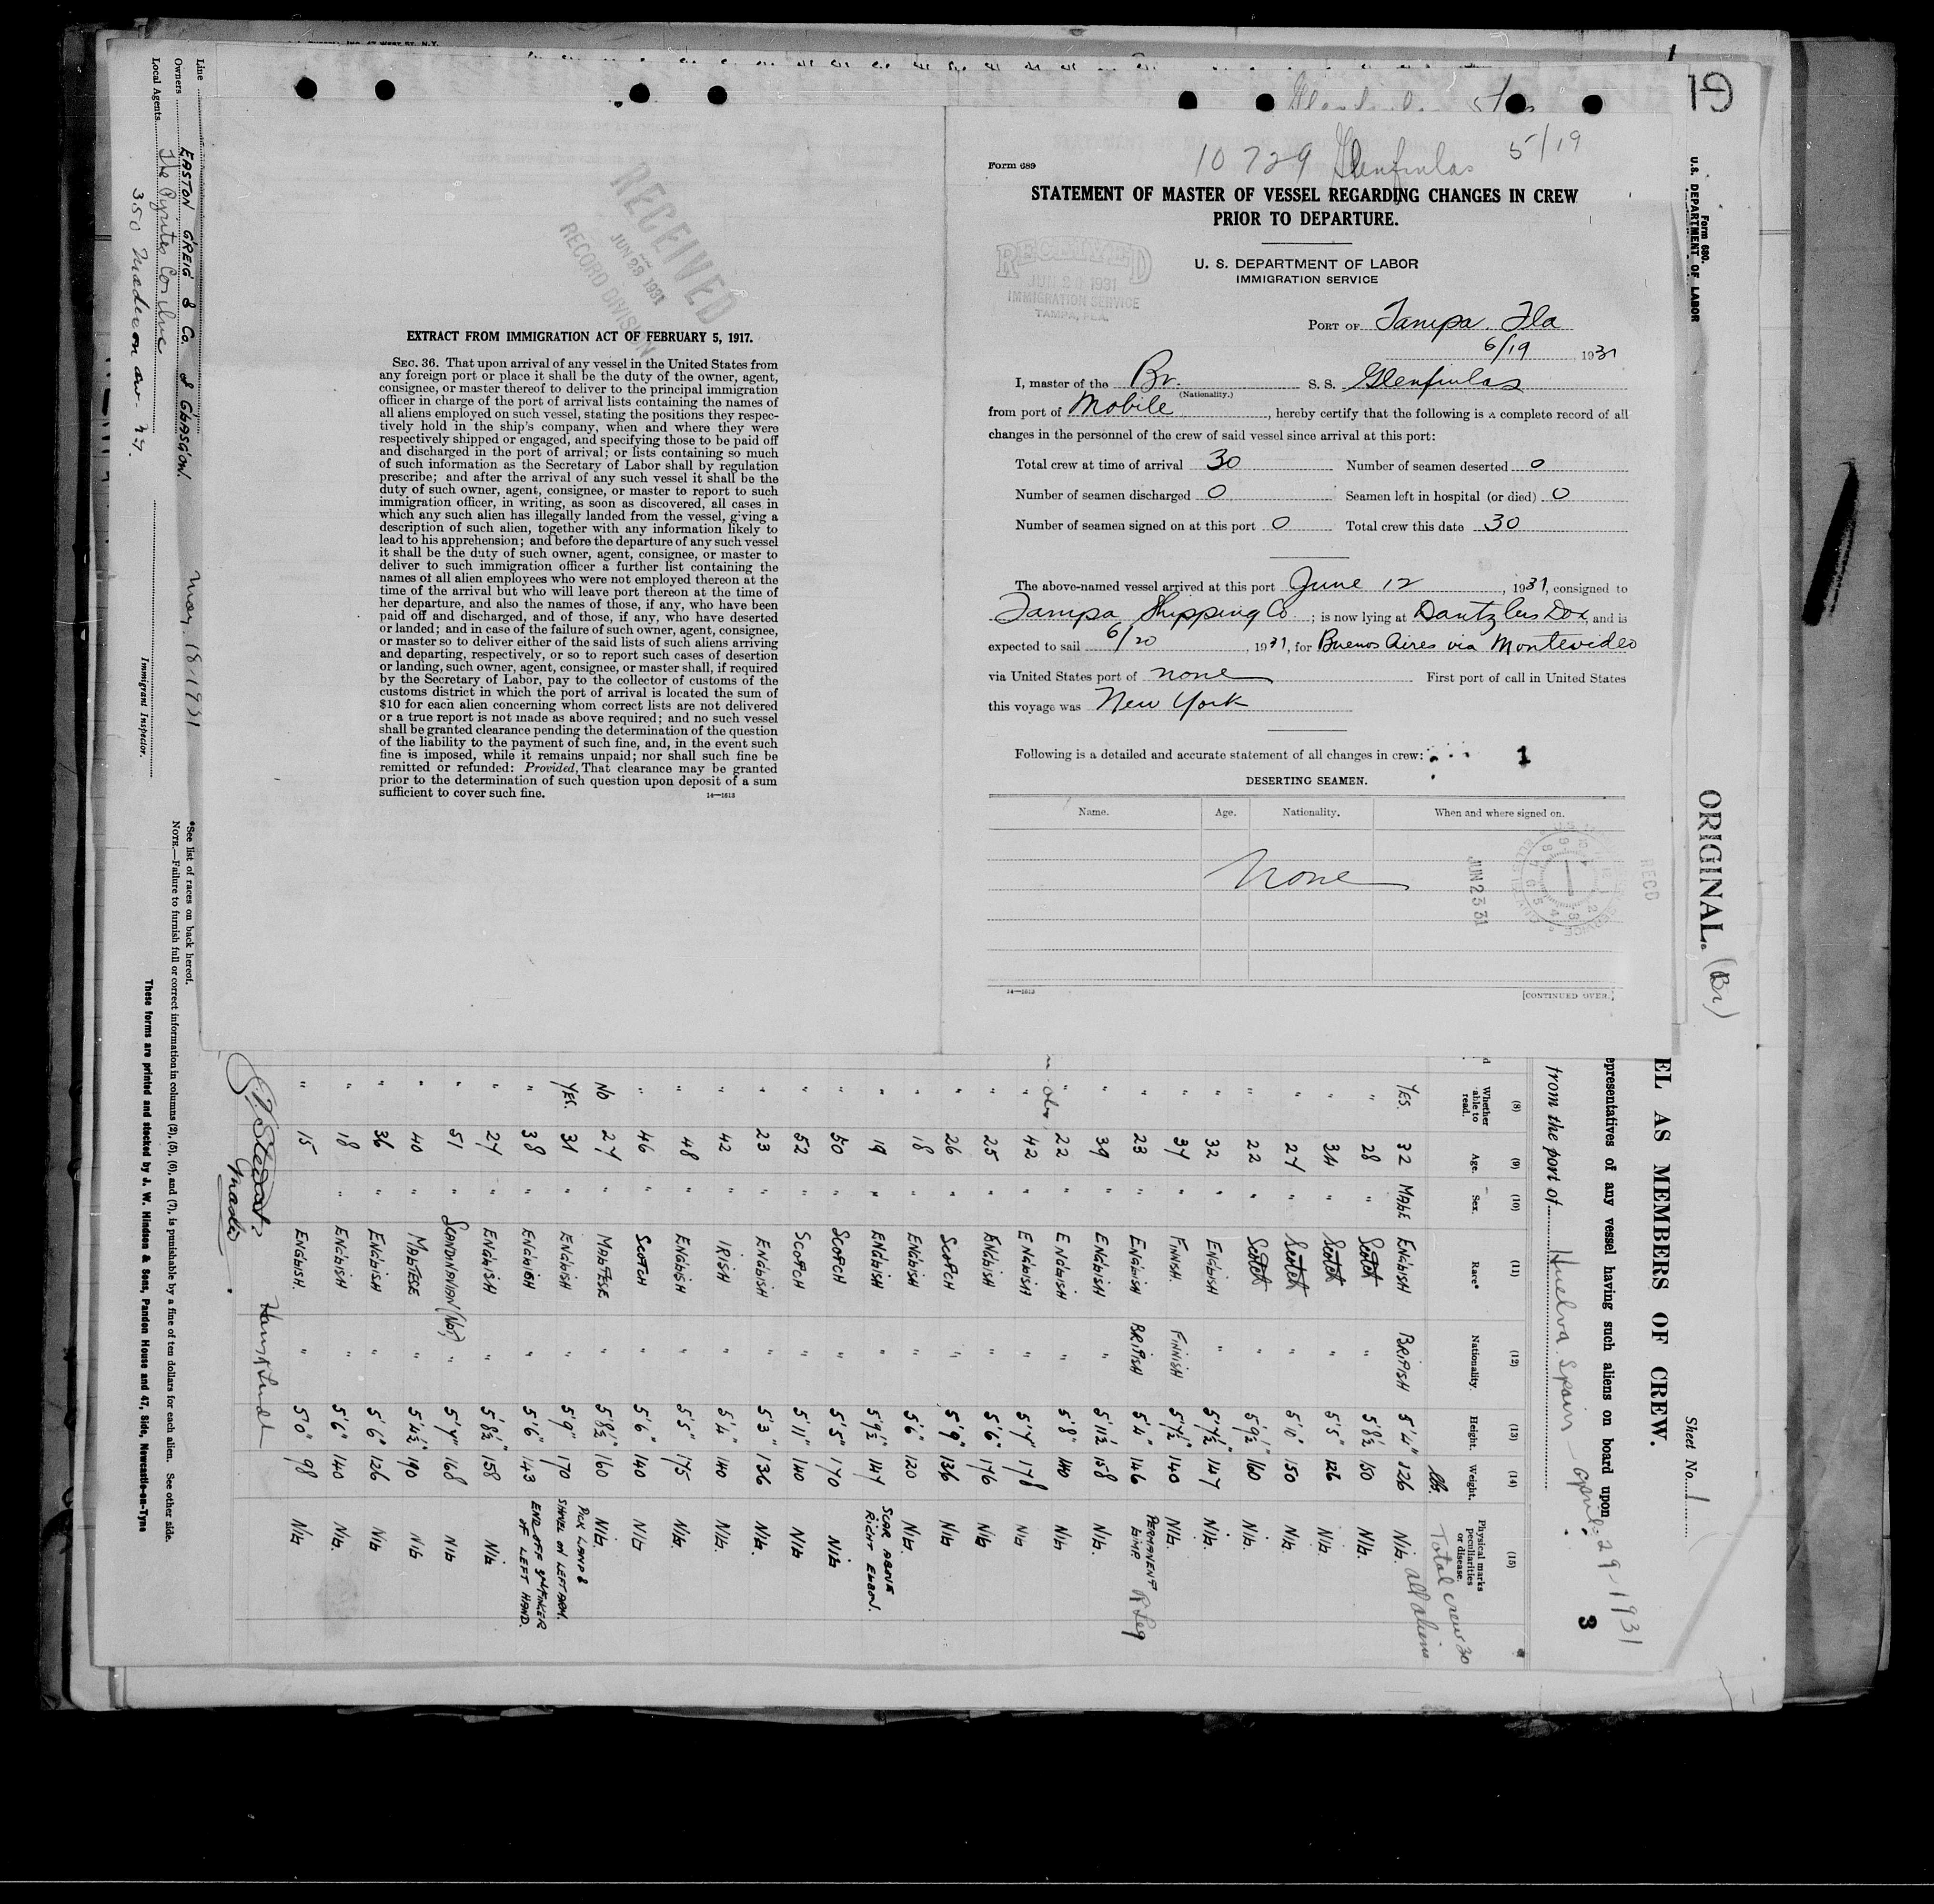 10729 Glenfinlas 5/19
Form 689
STATEMENT OF MASTER OF VESSEL REGARDING CHANGES IN CREW
PRIOR TO DEPARTURE.
U. S. DEPARTMENT OF LABOR
IMMIGRATION SERVICE
RECEIVED
JUN 20 1931
IMMIGRATION SERVICE
TAMPA, FLA.
PORT OF Tampa. Fla
6/19, 1931
I, master of the Br. S. S. Glenfinlas
(Nationality.)
from port of Mobile, hereby certify that the following is a complete record of all
changes in the personnel of the crew of said vessel since arrival at this port:
Total crew at time of arrival 30 Number of seamen deserted 0
Number of seamen discharged 0 Seamen left in hospital (or died) 0
Number of seamen signed on at this port 0 Total crew this date 30
The above-named vessel arrived at this port June 12, 1931, consigned to
Tampa Shipping Co; is now lying at Dantzlers Dox, and is
expected to sail 6/20, 1931, for Buenos Aires via Montevideo
via United States port of none First port of call in United States
this voyage was New York
Following is a detailed and accurate statement of all changes in crew:
1
DESERTING SEAMEN.
Name. Age. Nationality. When and where signed on.
None
JUN 23 31
RECD
14—1613
[CONTINUED OVER.]
RECEIVED
JUN 23 1931
RECORD DIVISION
EXTRACT FROM IMMIGRATION ACT OF FEBRUARY 5, 1917.
SEC. 36. That upon arrival of any vessel in the United States from
any foreign port or place it shall be the duty of the owner, agent,
consignee, or master thereof to deliver to the principal immigration
officer in charge of the port of arrival lists containing the names of
all aliens employed on such vessel, stating the positions they respec-
tively hold in the ship's company, when and where they were
respectively shipped or engaged, and specifying those to be paid off
and discharged in the port of arrival; or lists containing so much
of such information as the Secretary of Labor shall by regulation
prescribe; and after the arrival of any such vessel it shall be the
duty of such owner, agent, consignee, or master to report to such
immigration officer, in writing, as soon as discovered, all cases in
which any such alien has illegally landed from the vessel, giving a
description of such alien, together with any information likely to
lead to his apprehension; and before the departure of any such vessel
it shall be the duty of such owner, agent, consignee, or master to
deliver to such immigration officer a further list containing the
names of all alien employees who were not employed thereon at the
time of the arrival but who will leave port thereon at the time of
her departure, and also the names of those, if any, who have been
paid off and discharged, and of those, if any, who have deserted
or landed; and in case of the failure of such owner, agent, consignee,
or master so to deliver either of the said lists of such aliens arriving
and departing, respectively, or so to report such cases of desertion
or landing, such owner, agent, consignee, or master shall, if required
by the Secretary of Labor, pay to the collector of customs of the
customs district in which the port of arrival is located the sum of
$10 for each alien concerning whom correct lists are not delivered
or a true report is not made as above required; and no such vessel
shall be granted clearance pending the determination of the question
of the liability to the payment of such fine, and, in the event such
fine is imposed, while it remains unpaid; nor shall such fine be
remitted or refunded: Provided, That clearance may be granted
prior to the determination of such question upon deposit of a sum
sufficient to cover such fine.
14—1613
Form 680.
U.S. DEPARTMENT OF LABOR
ORIGINAL. (Br)
Sheet No. 1
EL AS MEMBERS OF CREW.
epresentatives of any vessel having such aliens on board upon
from the port of Huelva Spain April 29-1931
3
(8) (9) (10) (11) (12) (13) (14) (15)
Whether able to read. Age. Sex. Race* Nationality. Height. Weight. Physical marks peculiarities or disease.
lbs. Total crew 30
all aliens
YES. 32 MALE ENGLISH BRITISH 5'4" 126 NIL.
" 28 " Scotch " 5'8½ 150 NIL.
" 34 " Scotch " 5'5" 126 NIL.
" 27 " Scotch " 5'10" 150 NIL.
" 22 " Scotch " 5'9½" 160 NIL.
" 32 " ENGLISH " 5'7½" 147 NIL.
" 37 " FINNISH. FINNISH 5'7½" 140 NIL.
" 23 " ENGLISH BRITISH 5'4" 146 PERMANENT LIMP. R Leg
" 39 " ENGLISH " 5'11½ 158 NIL.
" 22 " ENGLISH " 5'8" 140 NIL
" 42 " ENGLISH " 5'7" 178 NIL
" 25 " ENGLISH " 5'6" 176 NIL
" 26 " SCOTCH " 5'9" 136 NIL
" 18 " ENGLISH " 5'6" 120 NIL.
" 19 " ENGLISH " 5'9½" 147 SCAR ABOVE RIGHT ELBOW.
" 50 " SCOTCH " 5'5" 170 NIL
" 52 " SCOTCH " 5'11" 140 NIL
" 23 " ENGLISH " 5'3" 136 NIL.
" 42 " IRISH " 5'4" 140 NIL
" 48 " ENGLISH " 5'5" 175 NIL.
" 46 " SCOTCH " 5'6" 140 NIL
NO 27 " MALTESE " 5'8½" 160 NIL.
YES. 31 " ENGLISH " 5'9" 170 PICK LAMP & SHOVEL ON LEFT ARM.
" 38 " ENGLISH " 5'6" 143 END OFF FINGER OF LEFT HAND.
" 27 " ENGLISH " 5'8½" 158 NIL
" 51 " SCANDINAVIAN (Nor) " 5'7" 168 NIL
" 40 " MALTESE " 5'4½" 190 NIL
" 36 " ENGLISH " 5'6" 126 NIL
" 18 " ENGLISH " 5'6" 140 NIL.
" 15 " ENGLISH. " 5'0" 98 NIL
Master
Line
Owners EASTON GREIG & Co. of GLASGOW.
Local Agents. The Pyrites Co. Inc
350 Madison av. N.Y.
May. 18-1931
Immigrant Inspector.
*See list of races on back hereof.
NOTE.—Failure to furnish full or correct information in columns (2), (5), (6), and (7), is punishable by a fine of ten dollars for each alien. See other side.
These forms are printed and stocked by J. W. Hindson & Sons, Pandon House and 47, Side, Newcastle-on-Tyne